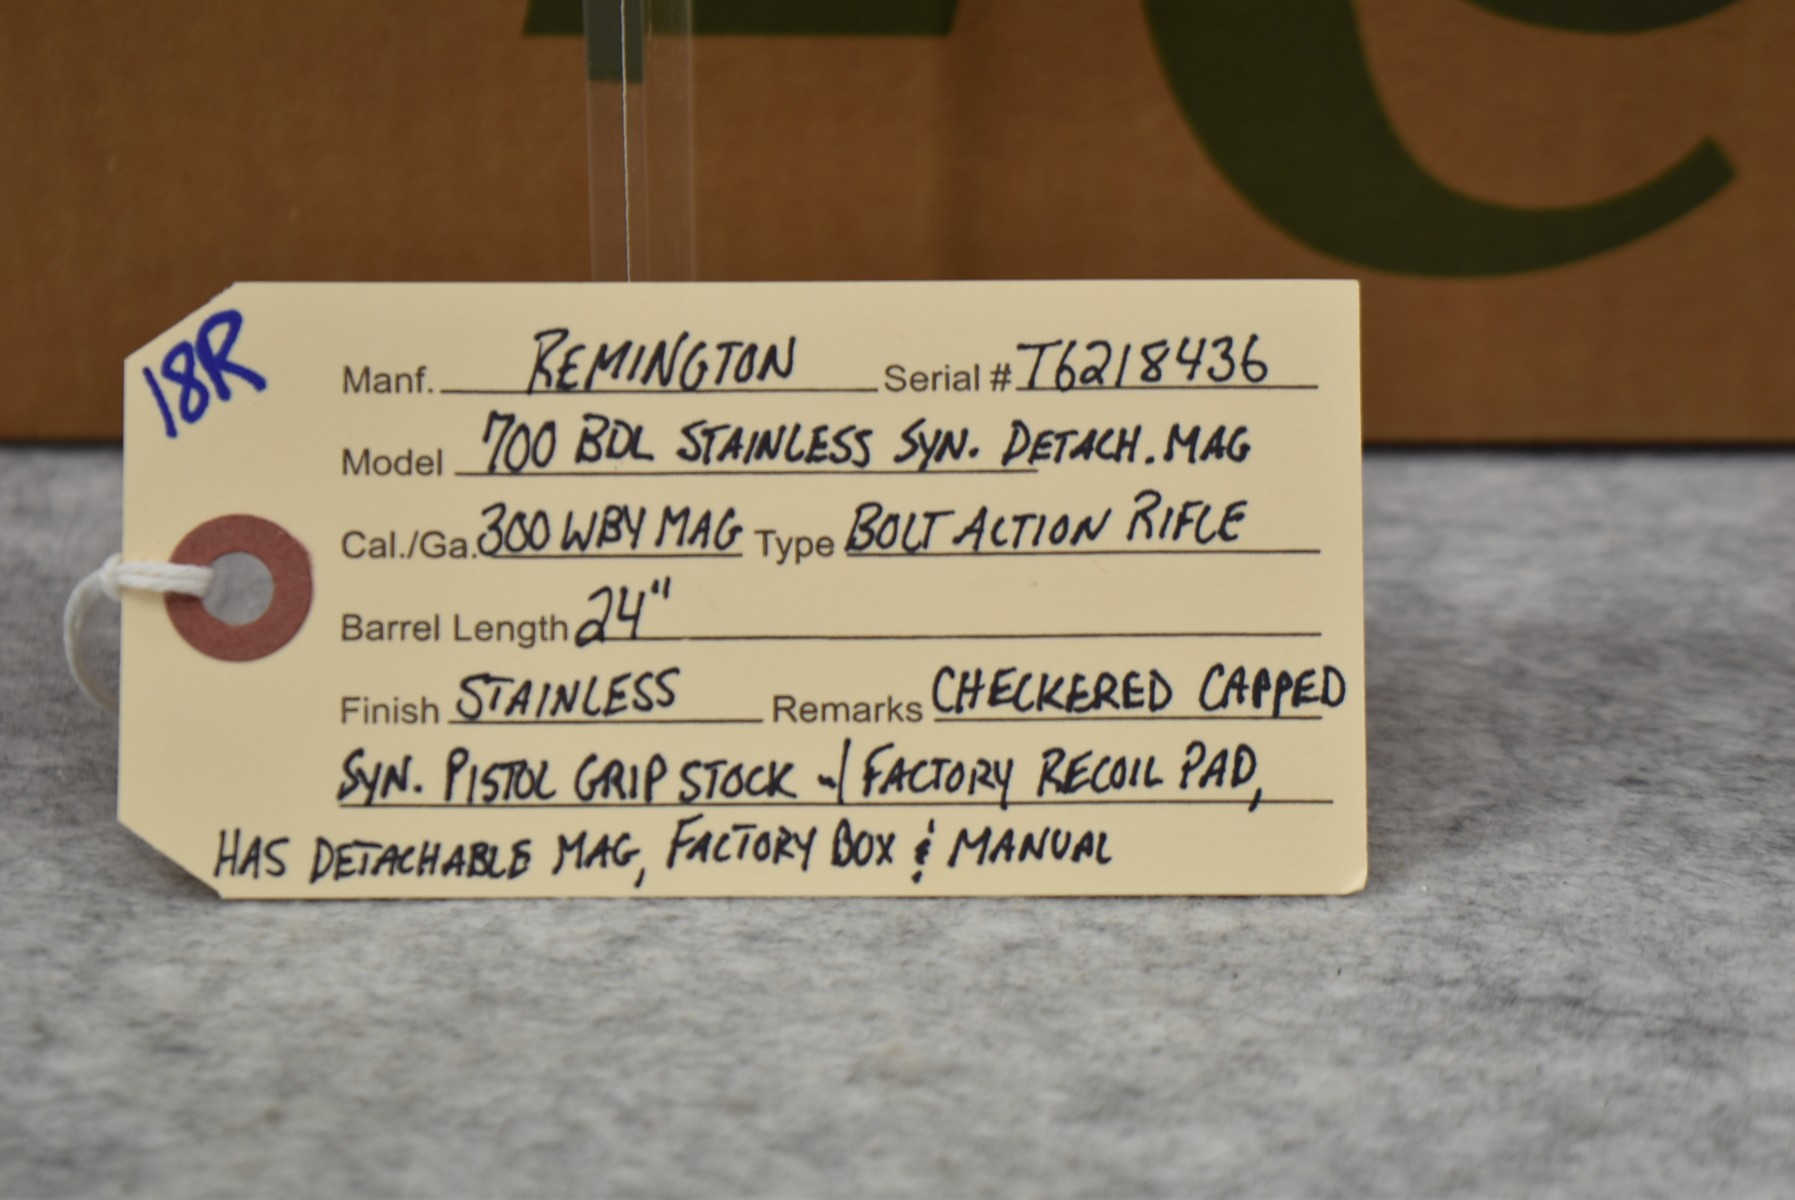 18R
Manf. REMINGTON Serial # T6218436
Model 700 BDL STAINLESS SYN. DETACH. MAG
Cal./Ga. 300 WBY MAG Type BOLT ACTION RIFLE
Barrel Length 24"
Finish STAINLESS Remarks CHECKERED CAPPED
SYN. PISTOL GRIP STOCK w/ FACTORY RECOIL PAD,
HAS DETACHABLE MAG, FACTORY BOX & MANUAL